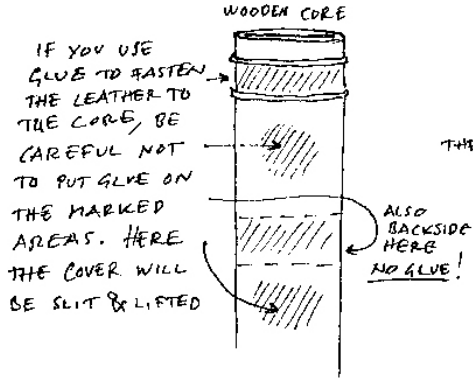 WOODEN CORE
IF YOU USE
GLUE TO FASTEN
THE LEATHER TO
THE CORE, BE
CAREFUL NOT
TO PUT GLUE ON
THE MARKED
AREAS. HERE
THE COVER WILL
BE SLIT & LIFTED
THE
ALSO
BACKSIDE
HERE
NO GLUE!